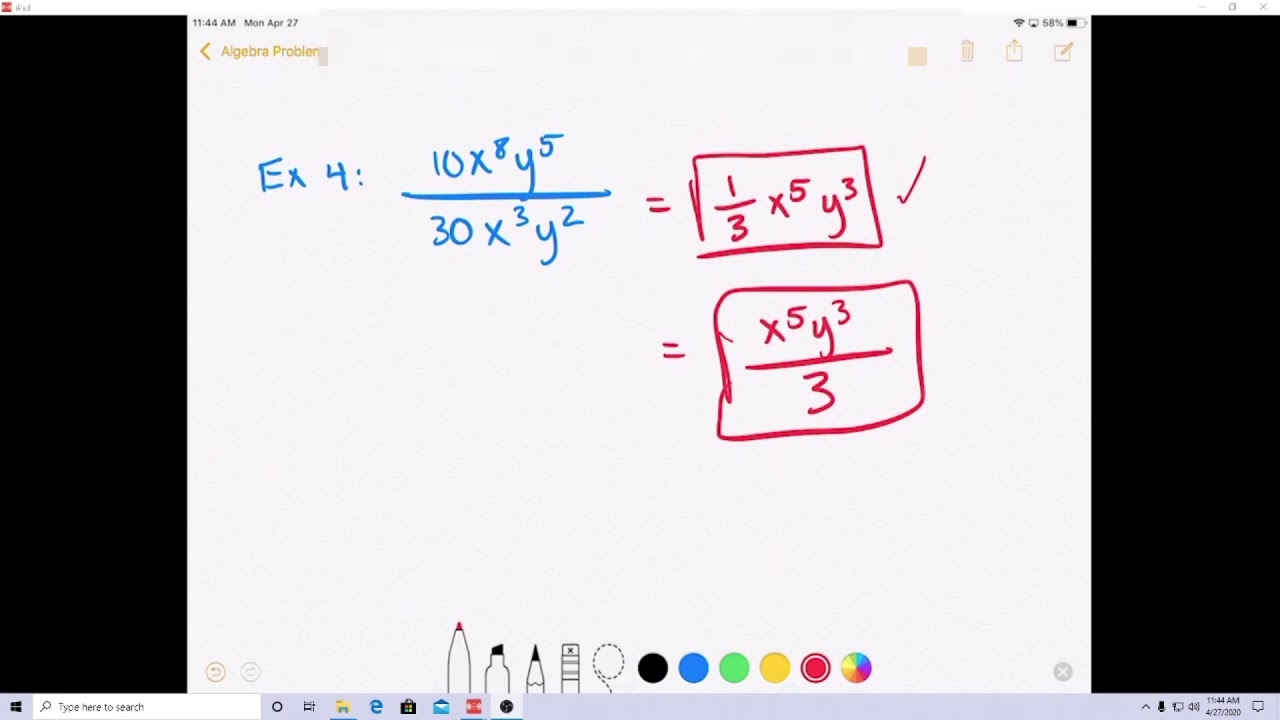 iPad
11:44 AM Mon Apr 27
58%
Algebra Problem
Ex 4: 10x⁸y⁵ / 30x³y² = 1/3 x⁵y³ ✓
= x⁵y³ / 3
Type here to search
11:44 AM
4/27/2020